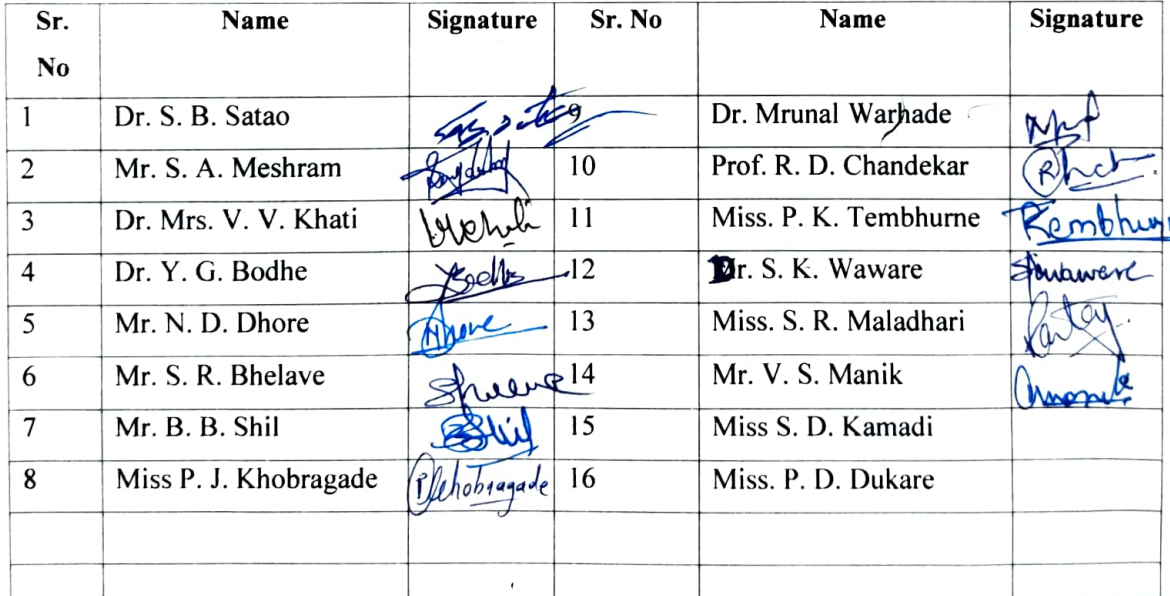 Sr. No Name Signature Sr. No Name Signature
1 Dr. S. B. Satao 9 Dr. Mrunal Warhade
2 Mr. S. A. Meshram 10 Prof. R. D. Chandekar
3 Dr. Mrs. V. V. Khati 11 Miss. P. K. Tembhurne
4 Dr. Y. G. Bodhe 12 Dr. S. K. Waware
5 Mr. N. D. Dhore 13 Miss. S. R. Maladhari
6 Mr. S. R. Bhelave 14 Mr. V. S. Manik
7 Mr. B. B. Shil Shil 15 Miss S. D. Kamadi
8 Miss P. J. Khobragade PKhobragade 16 Miss. P. D. Dukare